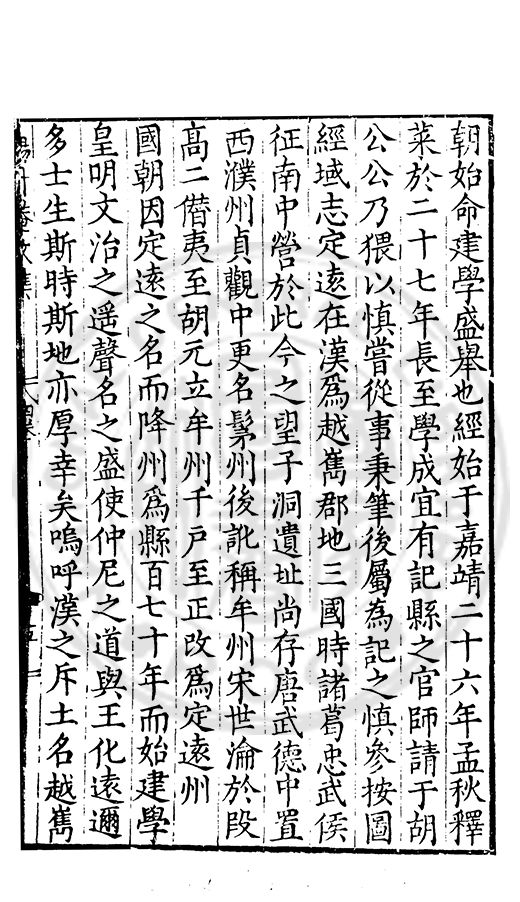 朝始命建學盛舉也經始于嘉靖二十六年孟秋釋
菜於二十七年長至學成宜有記縣之官師請于胡
公公乃猥以慎嘗從事秉筆後屬為記之慎參按圖
經域志定遠在漢爲越嶲郡地三國時諸葛忠武侯
征南中營於此今之望子洞遺址尚存唐武德中置
西濮州貞觀中更名髳州後訛稱牟州宋世淪於段
高二僭夷至胡元立牟州千戶至正改爲定遠州
國朝因定遠之名而降州爲縣百七十年而始建學
皇明文治之遥聲名之盛使仲尼之道與王化遠邇
多士生斯時斯地亦厚幸矣嗚呼漢之斥土名越嶲